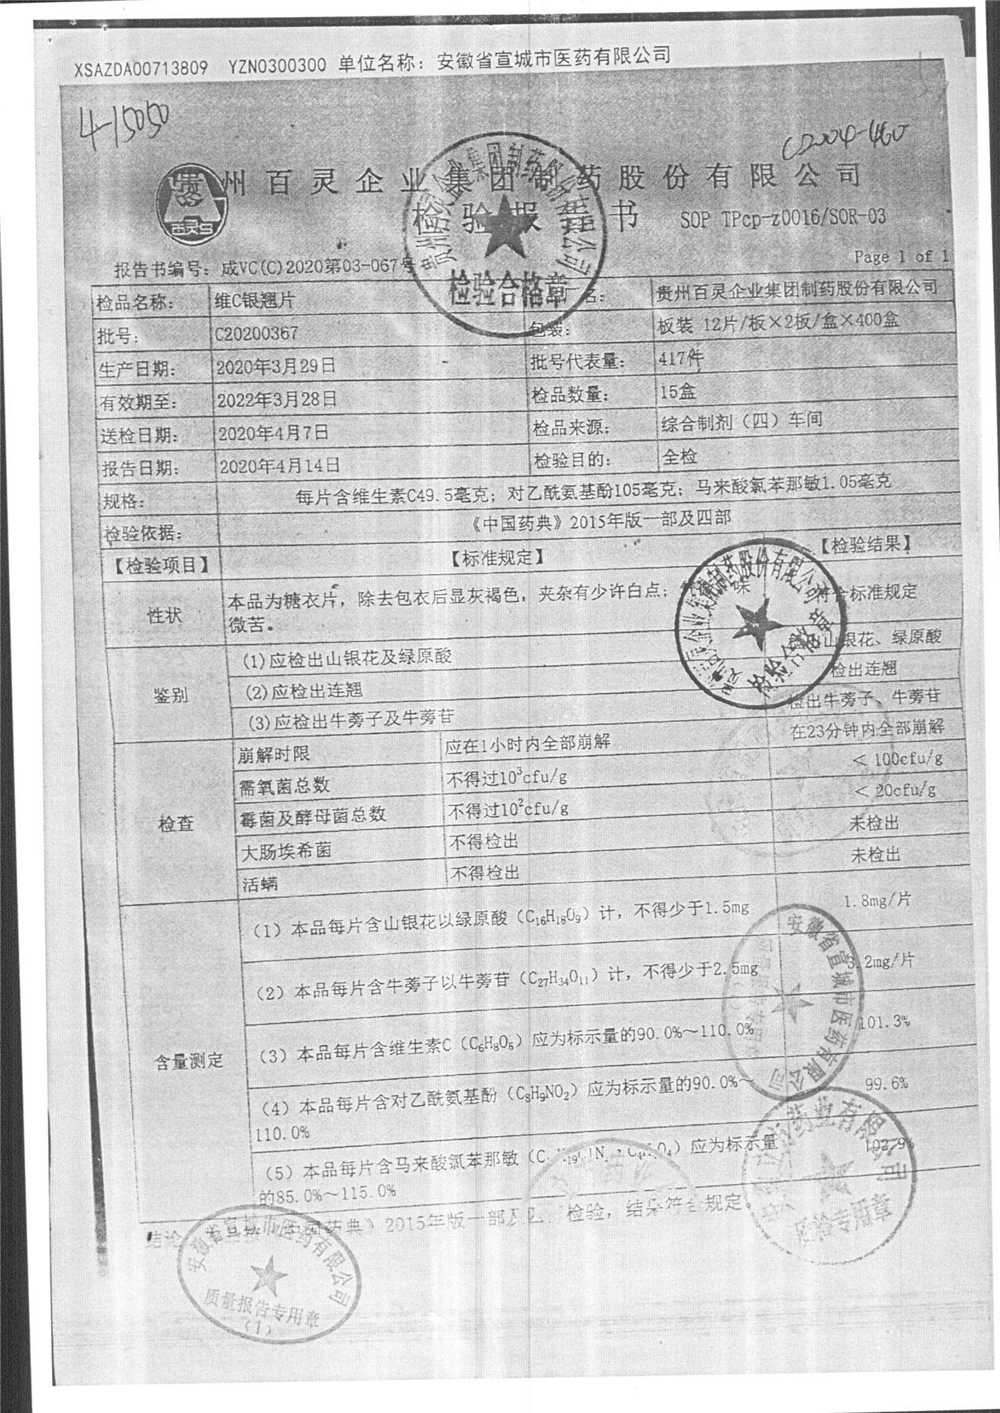 XSAZDA00713809 YZN0300300 单位名称：安徽省宣城市医药有限公司
4-15050
贵州百灵企业集团制药股份有限公司
检验报告书 SOP TPcp-z0016/SOR-03
报告书编号：成VC(C)2020第03-067号 Page 1 of 1
检品名称： 维C银翘片 名： 贵州百灵企业集团制药股份有限公司
批号： C20200367 包装： 板装 12片/板×2板/盒×400盒
生产日期： 2020年3月29日 批号代表量： 417件
有效期至： 2022年3月28日 检品数量： 15盒
送检日期： 2020年4月7日 检品来源： 综合制剂（四）车间
报告日期： 2020年4月14日 检验目的： 全检
规格： 每片含维生素C49.5毫克；对乙酰氨基酚105毫克；马来酸氯苯那敏1.05毫克
检验依据： 《中国药典》2015年版一部及四部
【检验项目】 【标准规定】 【检验结果】
性状 本品为糖衣片，除去包衣后显灰褐色，夹杂有少许白点； 味 符合标准规定
微苦。
鉴别 (1)应检出山银花及绿原酸 山银花、绿原酸
(2)应检出连翘 检出连翘
(3)应检出牛蒡子及牛蒡苷 检出牛蒡子、牛蒡苷
检查 崩解时限 应在1小时内全部崩解 在23分钟内全部崩解
需氧菌总数 不得过10³cfu/g ＜100cfu/g
霉菌及酵母菌总数 不得过10²cfu/g ＜20cfu/g
大肠埃希菌 不得检出 未检出
活螨 不得检出 未检出
含量测定 (1）本品每片含山银花以绿原酸（C₁₆H₁₈O₉）计，不得少于1.5mg 1.8mg/片
(2）本品每片含牛蒡子以牛蒡苷（C₂₇H₃₄O₁₁）计，不得少于2.5mg 3.2mg/片
(3）本品每片含维生素C（C₆H₈O₆）应为标示量的90.0%～110.0% 101.3%
(4）本品每片含对乙酰氨基酚（C₈H₉NO₂）应为标示量的90.0%～ 99.6%
110.0%
(5）本品每片含马来酸氯苯那敏 应为标示量 102.9%
的85.0%～115.0%
结论 药典》2015年版一部及 检验，结果符合规定
贵州百灵企业集团制药股份有限公司
检验合格章
贵州百灵企业集团制药股份有限公司
检验合格章
安徽省宣城市医药有限公司
药业有限公司
专用章
安徽省宣城市医药有限公司
质量报告专用章
(1)